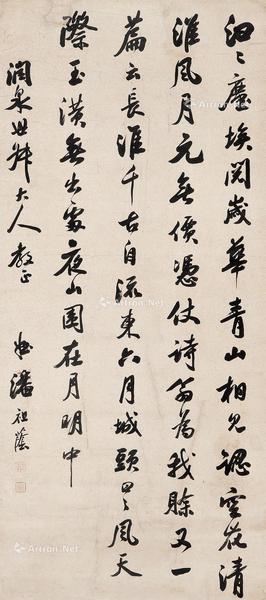 汩々塵埃閱歲華青山相見認空花清
淮風月元無價憑仗詩翁為我賒又一
篇云長淮千古自流東六月城頭風天
際玉潢無出處夜山圍在月明中
潤泉世叔大人教正 潘祖蔭
Artron.Net